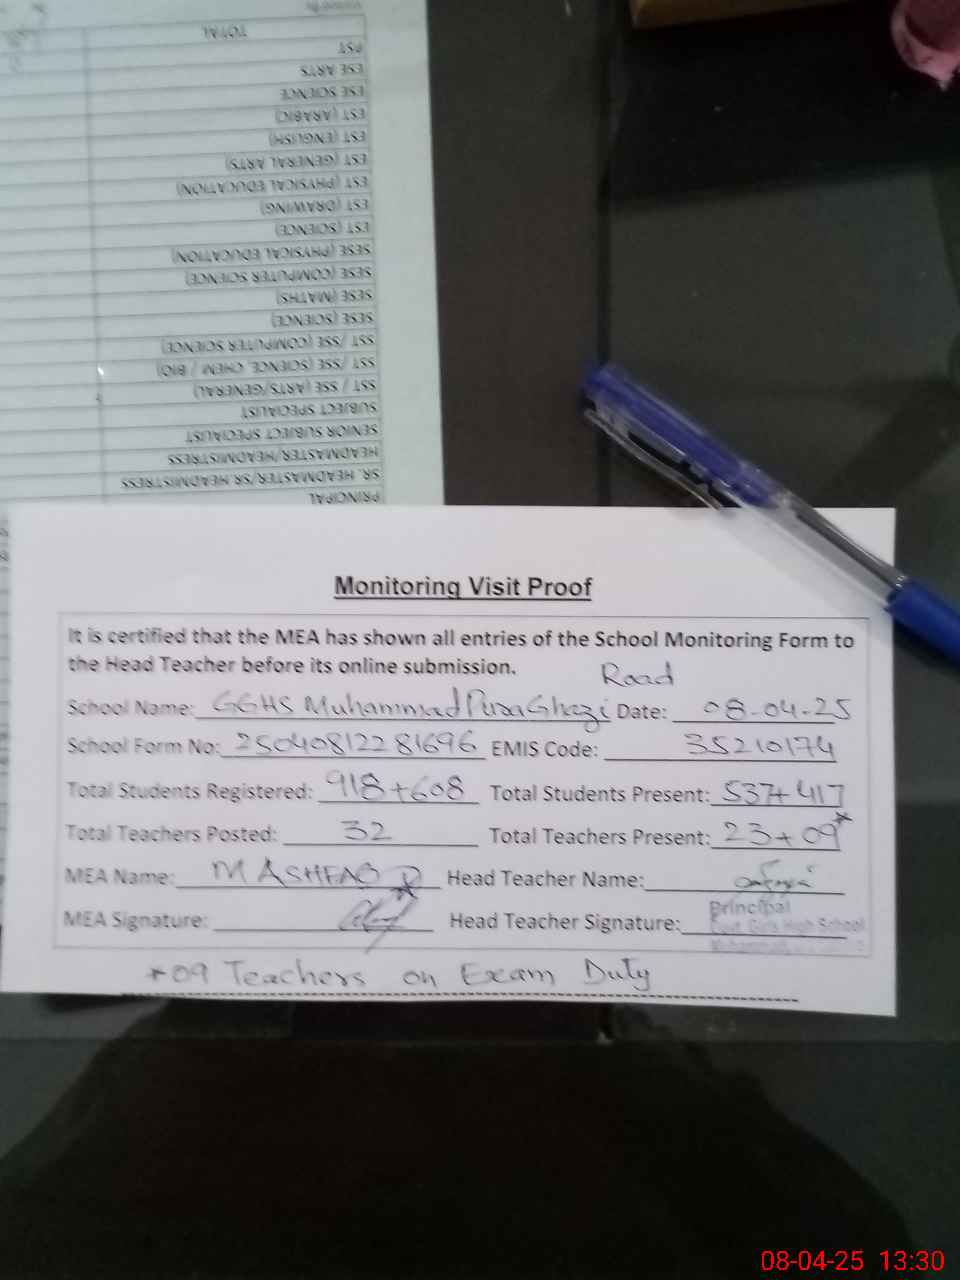 TOTAL
PST
ESE ARTS
ESE SCIENCE
EST (ARABIC)
EST (ENGLISH)
EST (GENERAL ARTS)
EST (PHYSICAL EDUCATION)
EST (DRAWING)
EST (SCIENCE)
SESE (PHYSICAL EDUCATION)
SESE (COMPUTER SCIENCE)
SESE (MATHS)
SESE (SCIENCE)
SST /SSE (COMPUTER SCIENCE)
SST /SSE (SCIENCE, CHEM / BIO)
SST / SSE (ARTS/GENERAL)
SUBJECT SPECIALIST
SENIOR SUBJECT SPECIALIST
HEADMASTER/HEADMISTRESS
SR. HEADMASTER/SR.HEADMISTRESS
PRINCIPAL
Monitoring Visit Proof
It is certified that the MEA has shown all entries of the School Monitoring Form to
the Head Teacher before its online submission.
Road
School Name: GGHS Muhammad Pura Ghazi Date: 08-04-25
School Form No: 2504081228 1696 EMIS Code: 35210174
Total Students Registered: 918+608 Total Students Present: 537+417
Total Teachers Posted: 32 Total Teachers Present: 23+09*
MEA Name: M ASHFAQ Head Teacher Name:
MEA Signature: Head Teacher Signature:
Principal
Govt. Girls High School
Muhammad
*09 Teachers on Exam Duty
08-04-25 13:30